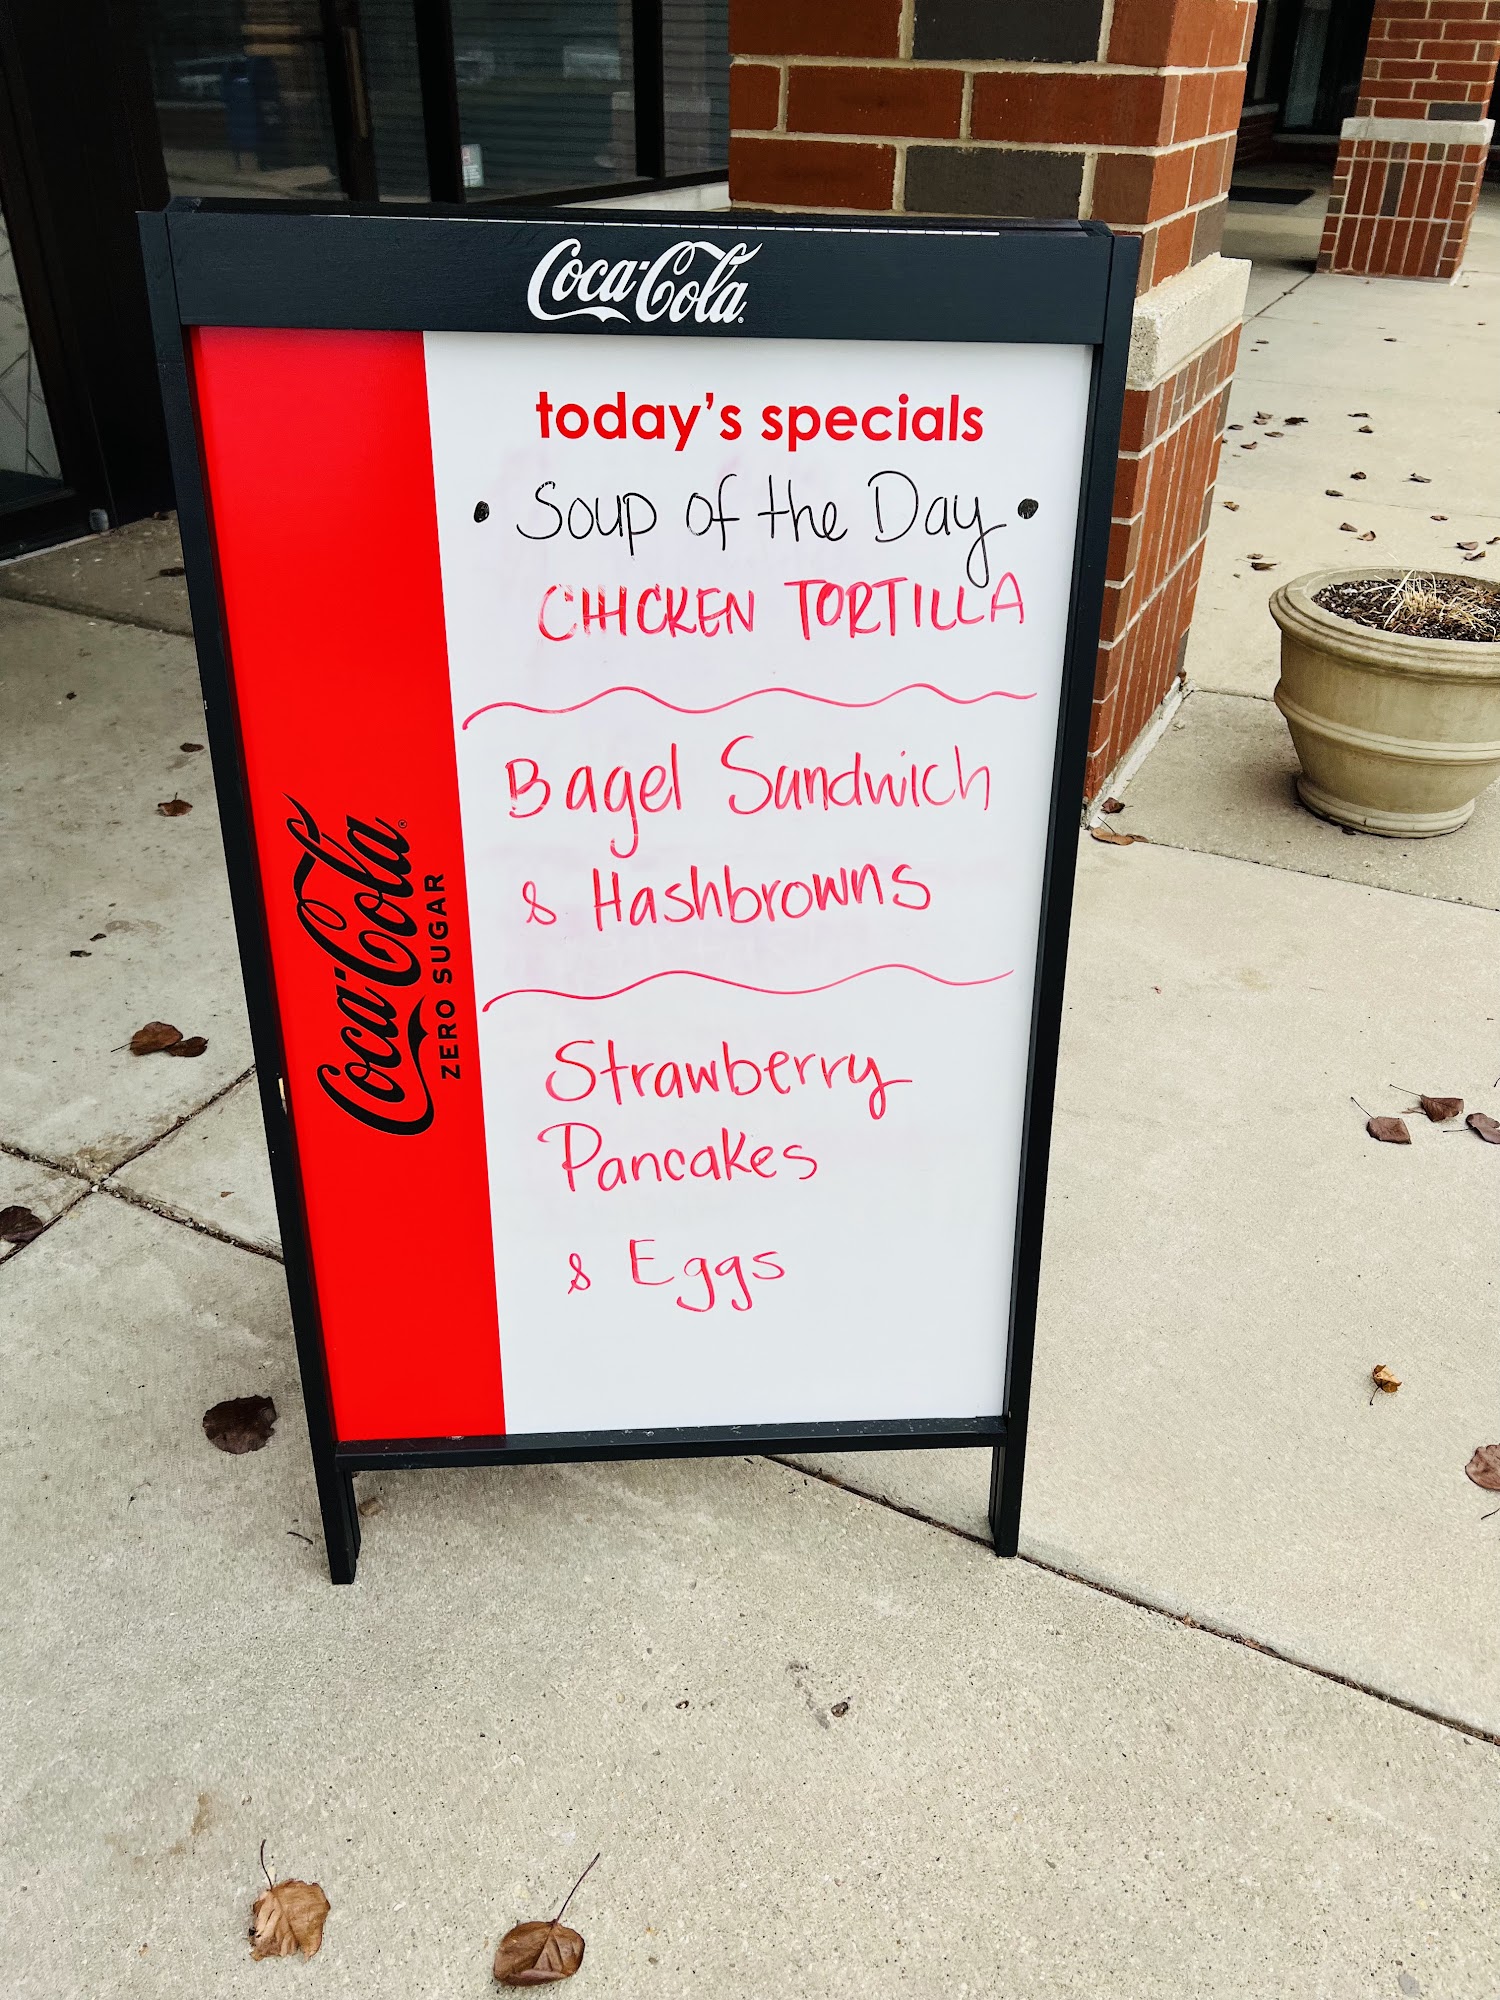 Coca-Cola
today's specials
• Soup of the Day •
CHICKEN TORTILLA
Bagel Sandwich
& Hashbrowns
Strawberry
Pancakes
& Eggs
Coca-Cola
ZERO SUGAR